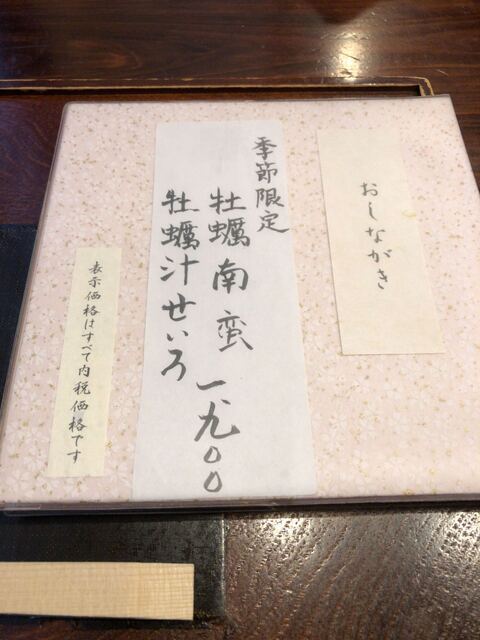 おしながき
季節限定
牡蠣南蛮 一、九〇〇
牡蠣汁せいろ
表示価格はすべて内税価格です